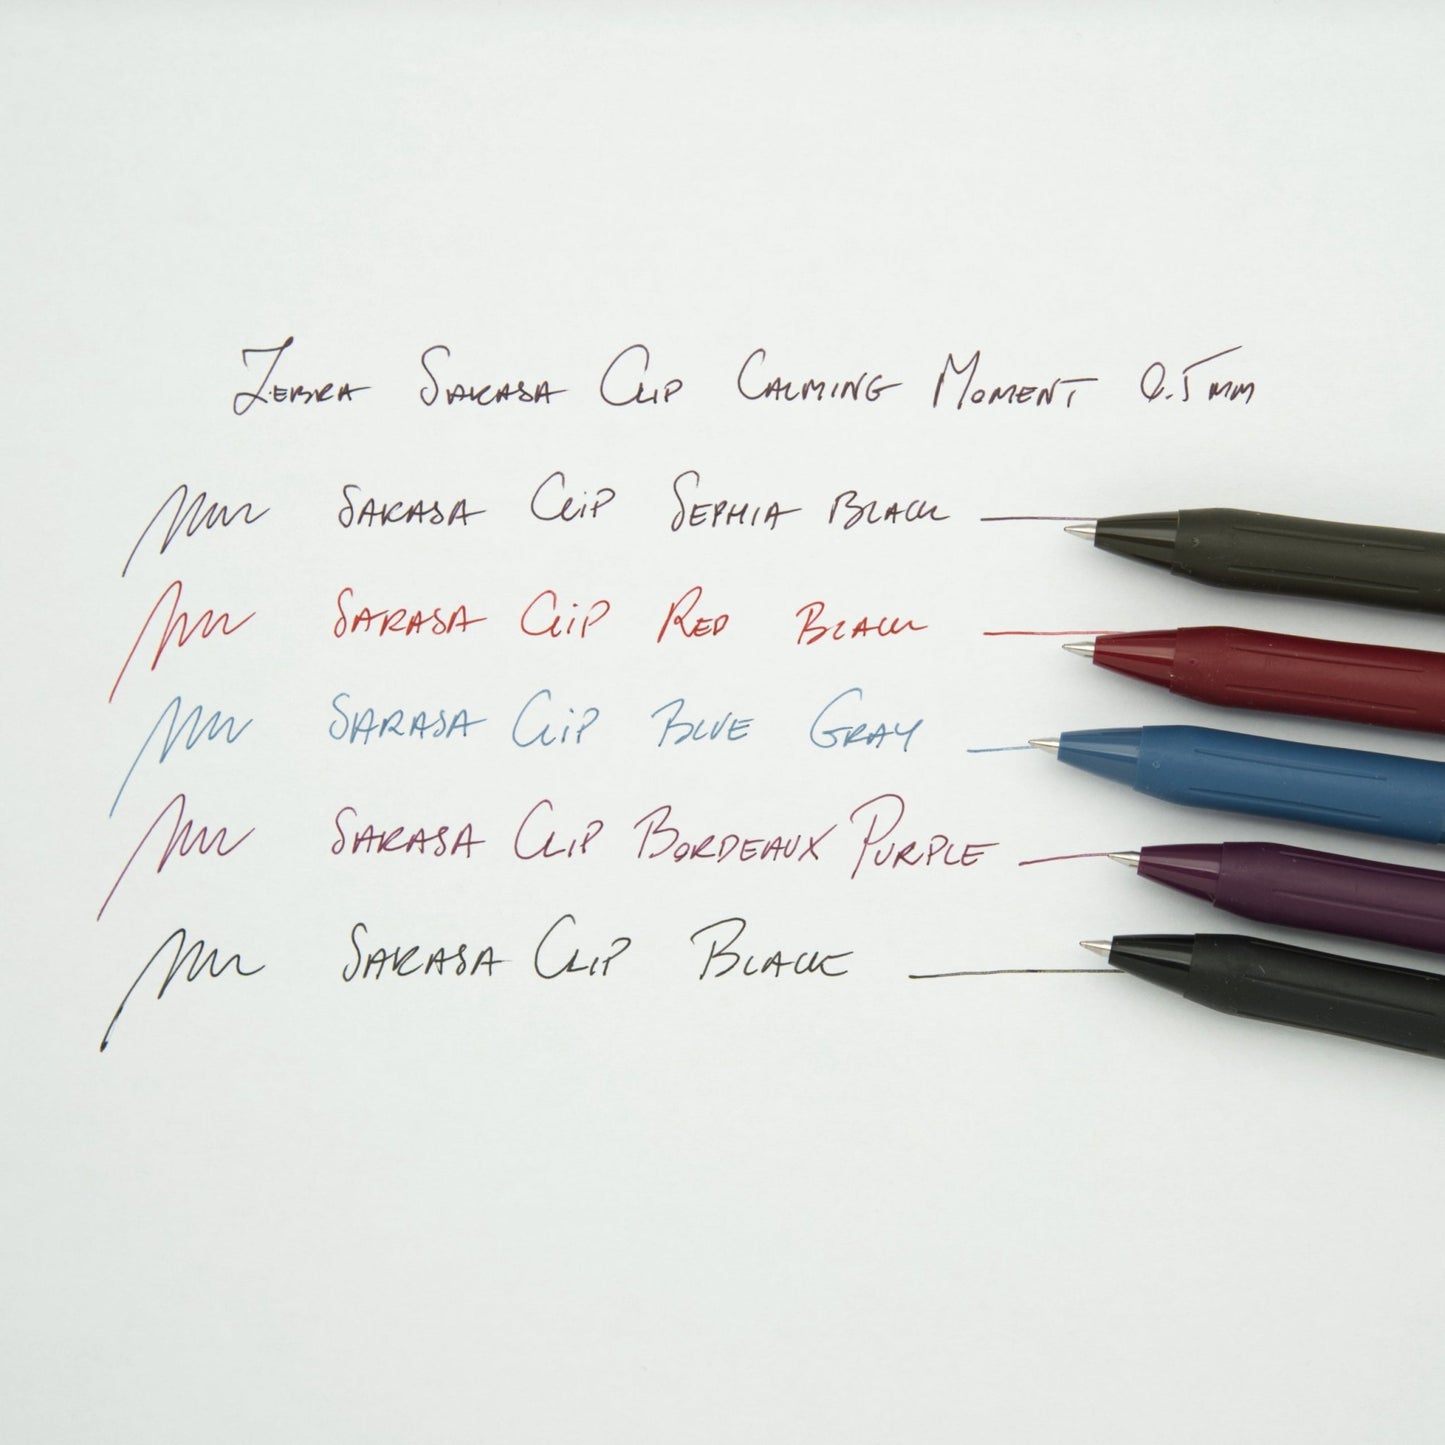 Zebra Sarasa Clip Calming Moment 0.5mm
Sarasa Clip Sephia Black
Sarasa Clip Red Black
Sarasa Clip Blue Gray
Sarasa Clip Bordeaux Purple
Sarasa Clip Black